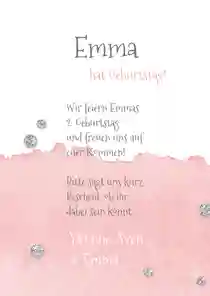 Emma
hat Geburtstag!
Wir feiern Emmas
2. Geburtstag
und freuen uns auf
euer Kommen!
Bitte sagt uns kurz
Bescheid, ob ihr
dabei sein könnt.
& Emma